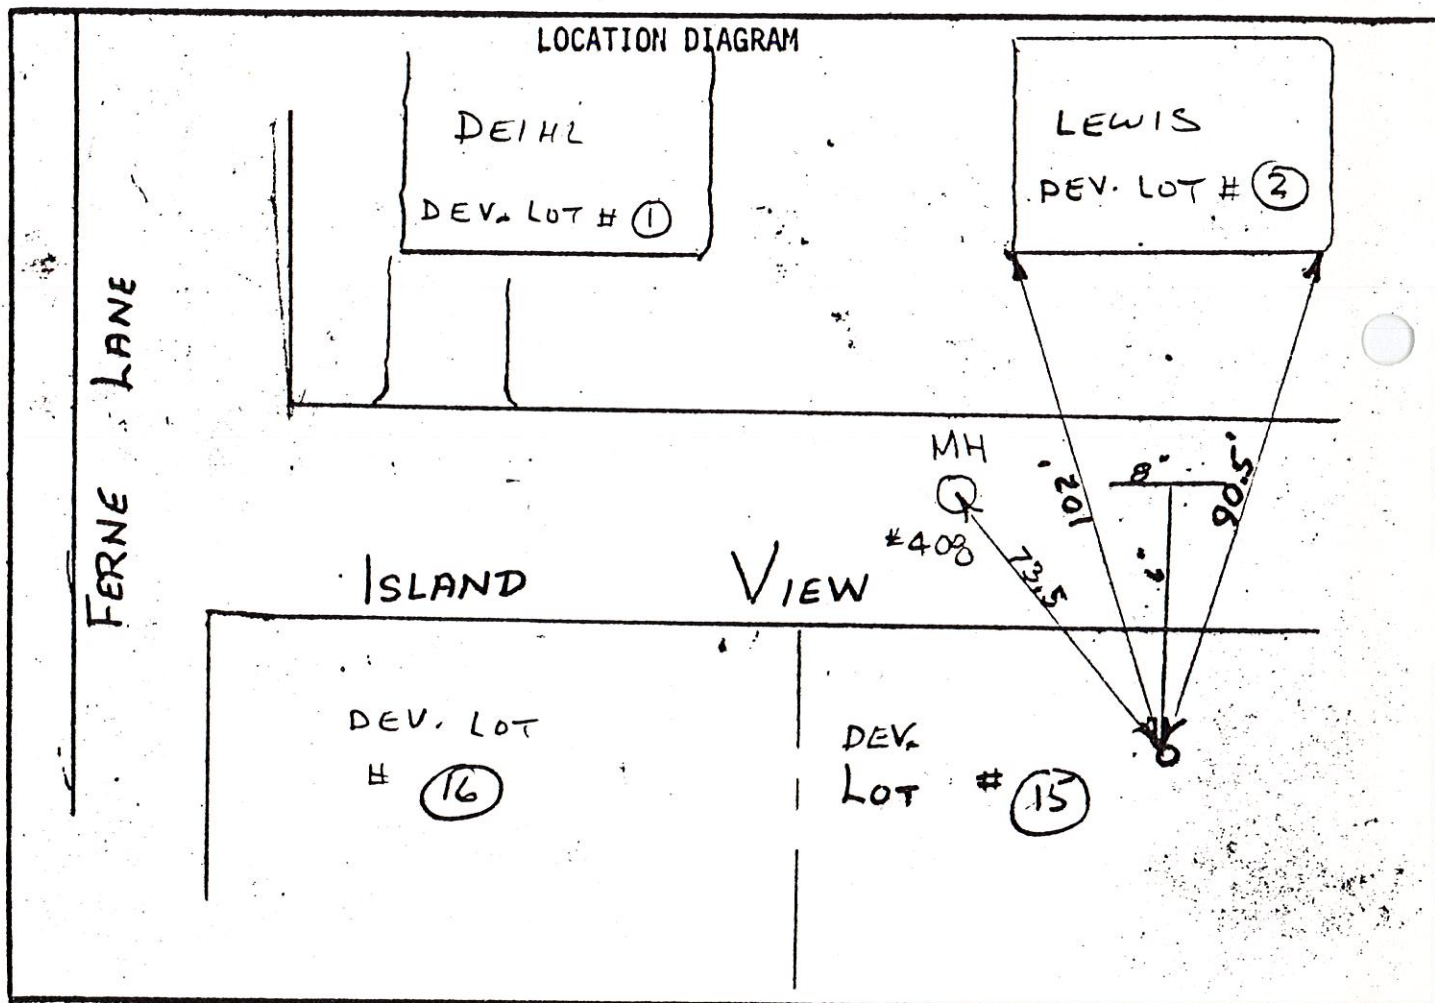 LOCATION DIAGRAM
DEIHL
DEV. LOT # 1
LEWIS
DEV. LOT # 2
FERNE LANE
MH
#408
73.5
102'
8"
6"
90.5'
ISLAND VIEW
DEV. LOT
# 16
DEV.
LOT # 15